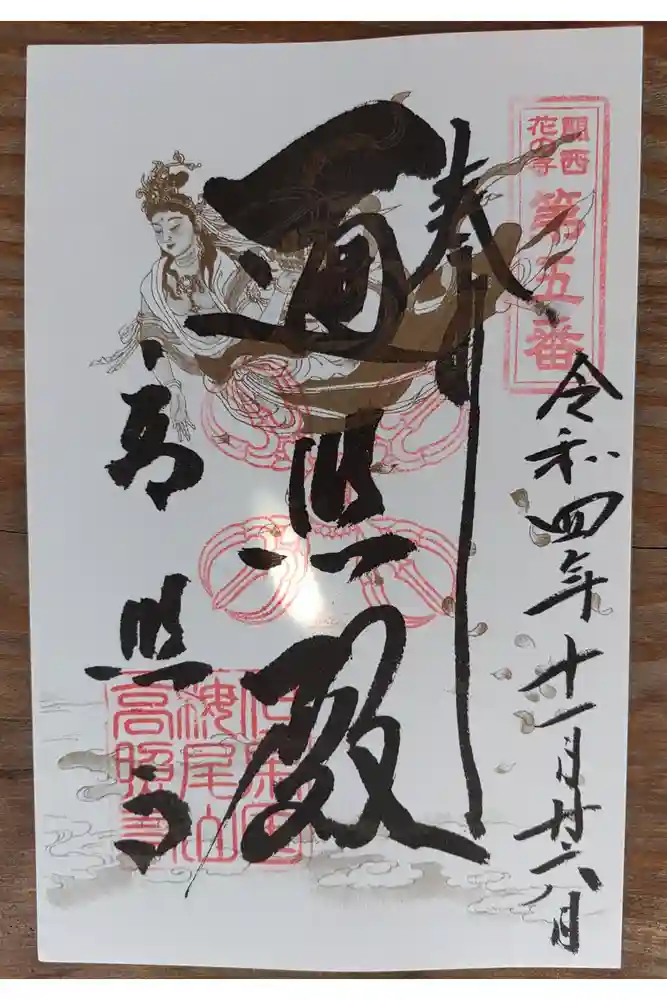 関西
花の寺
第五番
令和四年十一月廿六日
奉拝
遍照殿
高照寺
梅尾山
高照寺